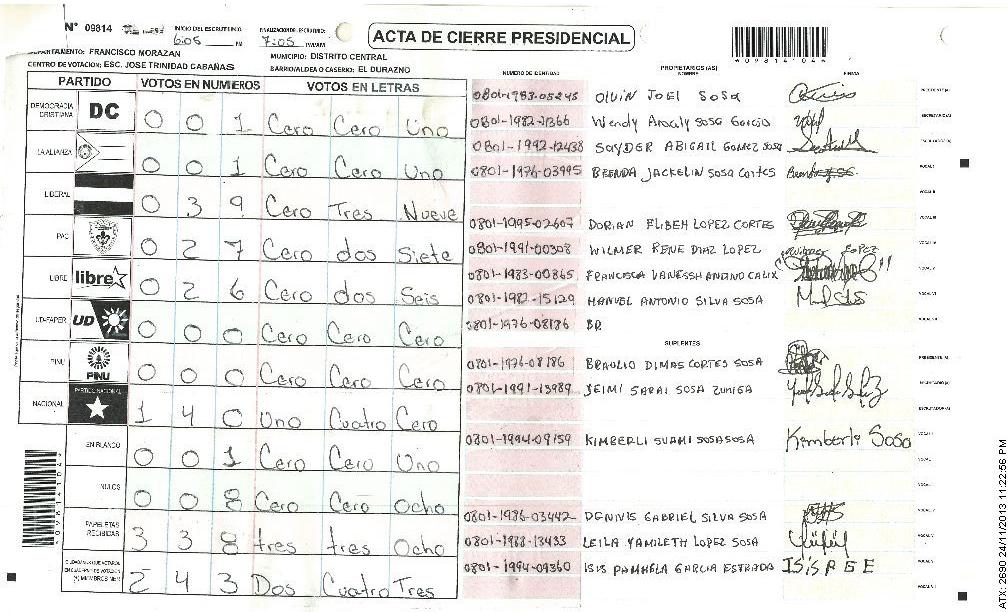 N° 09814
INICIO DEL ESCRUTINIO: 6:05 PM
FINALIZACION ESCRUTINIO: 7:05 PM/AM
ACTA DE CIERRE PRESIDENCIAL
*098141044*
DEPARTAMENTO: FRANCISCO MORAZAN
MUNICIPIO: DISTRITO CENTRAL
CENTRO DE VOTACION: ESC. JOSE TRINIDAD CABAÑAS
BARRIO/ALDEA O CASERIO: EL DURAZNO
PARTIDO VOTOS EN NUMEROS VOTOS EN LETRAS
DEMOCRACIA CRISTIANA DC 0 0 1 Cero Cero Uno
LA ALIANZA 0 0 1 Cero Cero Uno
LIBERAL 0 3 9 Cero Tres Nueve
PAC 0 2 7 Cero dos Siete
LIBRE libre 0 2 6 Cero dos Seis
UD-FAPER UD 0 0 0 Cero Cero Cero
PINU PINU 0 0 0 Cero Cero Cero
NACIONAL PARTIDO NACIONAL 1 4 0 Uno Cuatro Cero
EN BLANCO 0 0 1 Cero Cero Uno
NULOS 0 0 8 Cero Cero Ocho
PAPELETAS RECIBIDAS 3 3 8 tres tres Ocho
CIUDADANOS QUE VOTARON 2 4 3 Dos Cuatro Tres
NUMERO DE IDENTIDAD PROPIETARIOS (AS) NOMBRE FIRMA
0801-1983-05245 OLVIN JOEL SOSA PRESIDENTE(A)
0801-1982-11366 Wendy Aracely Sosa Garcia SECRETARIO(A)
0801-1992-12438 SAYDER ABIGAIL GOMEZ SOSA ESCRUTADOR(A)
0801-1976-03995 BRENDA JACKELIN SOSA CORTES VOCAL I
VOCAL II
0801-1995-02607 DORIAN ELIBEH LOPEZ CORTES VOCAL III
0801-1991-00308 WILMER RENE DIAZ LOPEZ VOCAL IV
0801-1983-00865 FRANCISCA VANESSH ANDINO CALIX VOCAL V
0801-1982-15129 MANUEL ANTONIO SILVA SOSA VOCAL VI
0801-1976-08186 BR VOCAL VII
SUPLENTES
0801-1976-08186 BRAULIO DIMAS CORTES SOSA PRESIDENTE(A)
0801-1991-13989 JEIMI SARAI SOSA ZUNIGA SECRETARIO(A)
ESCRUTADOR(A)
0801-1994-09159 KIMBERLI SUAMI SOSA SOSA Kimberli Sosa VOCAL I
0801-1986-03442 DENNIS GABRIEL SILVA SOSA
0801-1988-13433 LEILA YAMILETH LOPEZ SOSA
0801-1994-09360 ISIS PAMMELA GARCIA ESTRADA
*098141044*
ATX: 2690 24/11/2013 11:22:56 PM